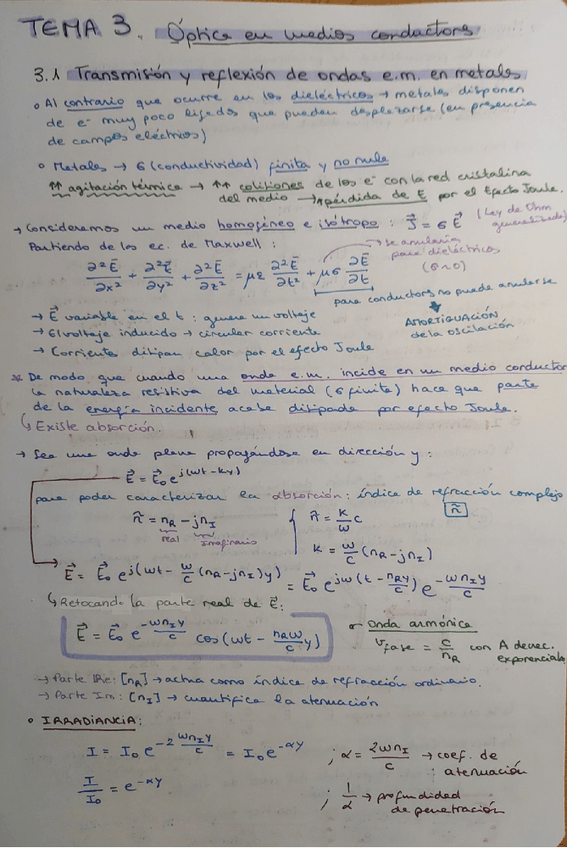 TEMA 3. Óptica en medios conductors
3.1 Transmisión y reflexión de ondas e.m. en metales
o Al contrario que ocurre en los dieléctricos → metales disponen
de e⁻ muy poco ligados que pueden desplazarse (en presencia
de campos eléctricos)
o Metales → σ (conductividad) finita y no nula
↑↑ agitación térmica → ↑↑ colisiones de los e⁻ con la red cristalina
del medio → ↑ pérdida de E por el Efecto Joule.
→ Consideramos un medio homogéneo e isótropo : J⃗ = σ E⃗ (Ley de Ohm
generalizada)
Partiendo de las ec. de Maxwell :
→ se anularía
para dieléctricos
(σ~0)
∂²E⃗/∂x² + ∂²E⃗/∂y² + ∂²E⃗/∂z² = με ∂²E⃗/∂t² + μσ ∂E⃗/∂t
para conductors no puede anularse
→ E⃗ variable en el t : genera un voltaje
AMORTIGUACIÓN
→ El voltaje inducido → circular corriente
de la oscilación
→ Corrientes disipan calor por el efecto Joule
* De modo que cuando una onda e.m. incide en un medio conductor
la naturaleza resistiva del material (σ finita) hace que parte
de la energía incidente acabe disipada por efecto Joule.
↳ Existe absorción.
→ Sea una onda plana propagándose en dirección y :
E⃗ = E⃗₀ e^{j(ωt - ky)}
para poder caracterizar la absorción : índice de refracción complejo
ñ
ñ = n_R - j n_I
real Imaginario
ñ = k/ω c
k = ω/c (n_R - j n_I)
E⃗ = E⃗₀ e^{j(ωt - ω/c (n_R - j n_I) y)} = E⃗₀ e^{jω(t - n_R y/c)} e^{-ω n_I y/c}
↳ Retocando la parte real de E⃗ :
E⃗ = E⃗₀ e^{-ω n_I y/c} cos(ωt - n_R ω/c y)
Onda armónica
v_fase = c/n_R con A decrec.
exponencial
→ Parte Re: [n_R] → actúa como índice de refracción ordinario.
→ Parte Im: [n_I] → cuantifica la atenuación
o IRRADIANCIA :
I = I₀ e^{-2 ω n_I y/c} = I₀ e^{-αy} ; α = 2ω n_I/c → coef. de
atenuación
I/I₀ = e^{-αy} ; 1/α → profundidad
de penetración